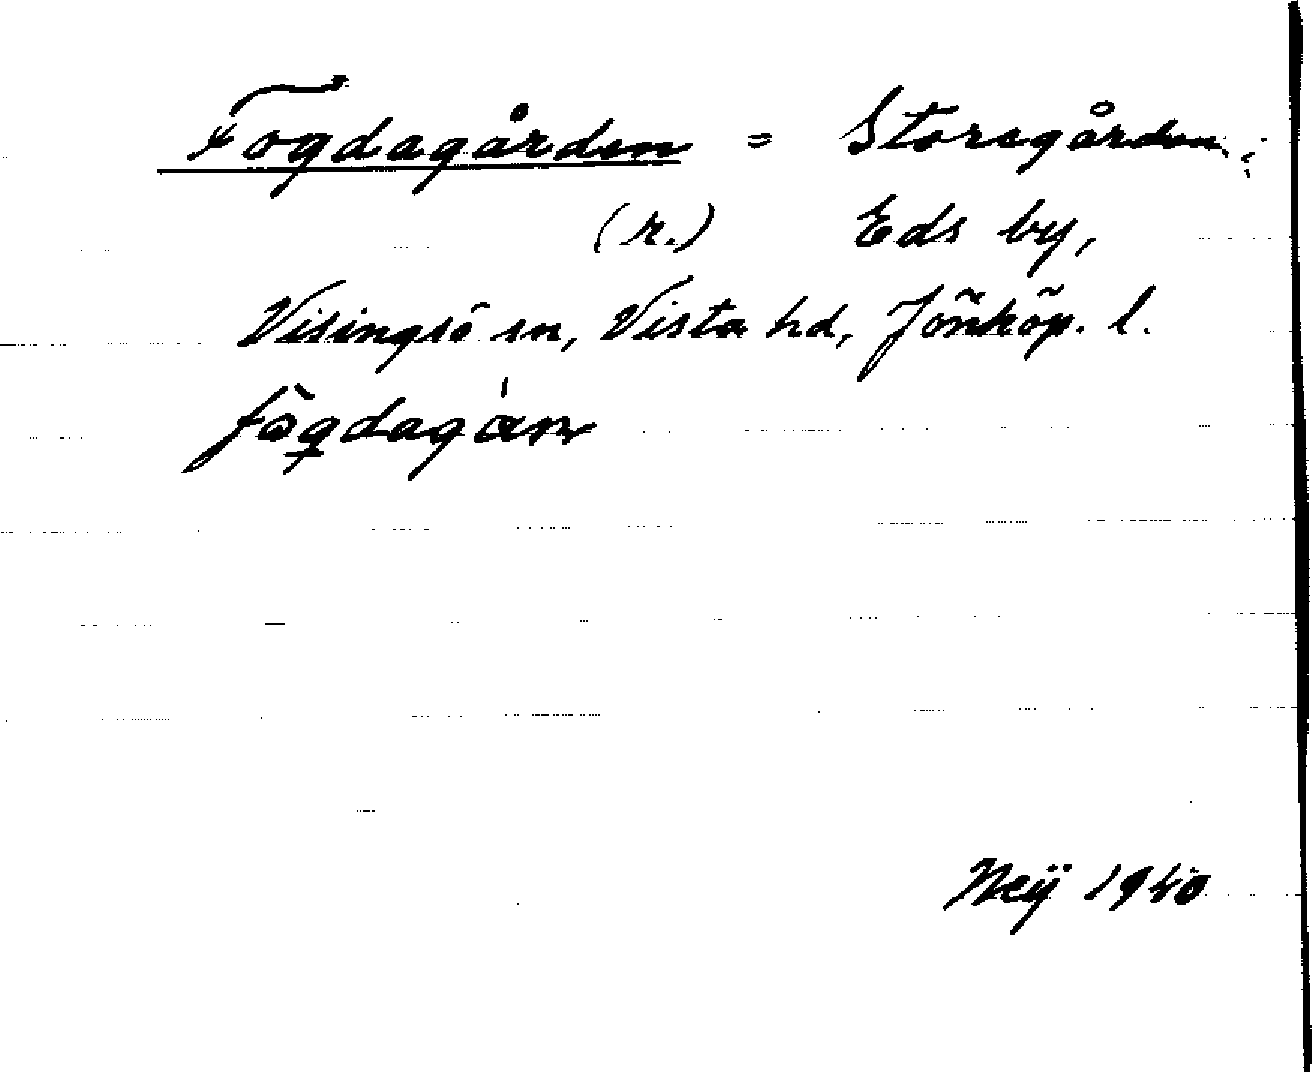 Fogdagården = Storegården i
(r.) Eds by,
Visingsö sn, Vista hd, Jönköp. l.
Ney 1940